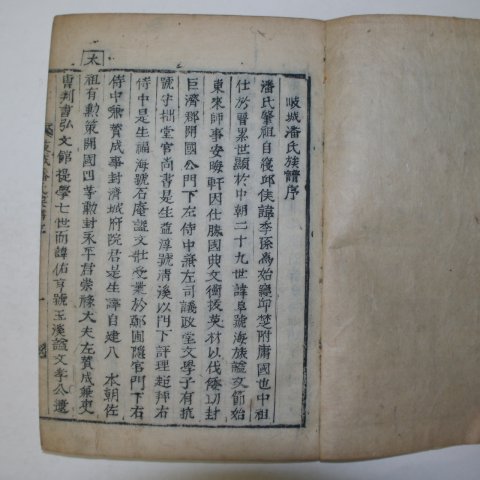 岐城潘氏族譜序
潘氏肇祖自後邱侯諱季孫爲始邱楚附庸國也中祖
仕於晋累世顯於中朝二十九世諱阜號海族謚文節始
東來師事安晦軒因仕勝國典文衡援英材以伐倭功封
巨濟郡開國公門下左侍中兼左司議政堂文學子有抗
號守拙堂官尚書是生益淳號清溪以門下評理超拜右
侍中是生福海號石庵謚文壯受業於鄭圃隱官門下右
侍中兼贊成事封濟城府院君是生諱自建入 本朝佐
太
祖有勳策開國四等勳封永平君崇祿大夫左贊成兼吏
曹判書弘文館提學七世而諱佑亨號玉溪謚文孝公遺